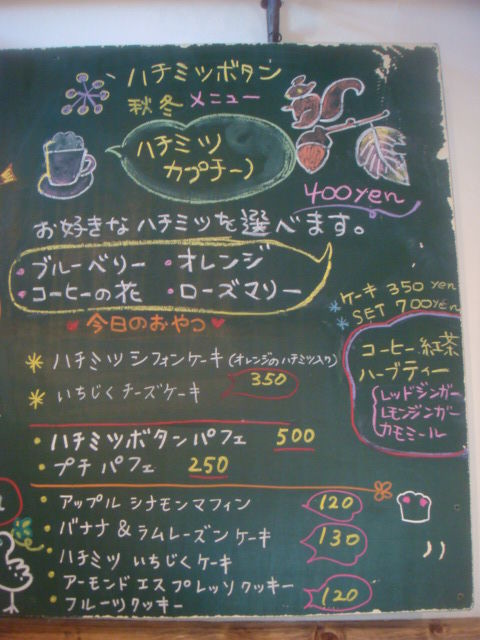 ハチミツボタン
秋冬 メニュー
ハチミツ
カプチーノ
400yen
お好きなハチミツを選べます。
・ブルーベリー ・オレンジ
・コーヒーの花 ・ローズマリー
今日のおやつ
ケーキ 350 yen
SET 700yen
ハチミツシフォンケーキ(オレンジのハチミツ入り)
いちじくチーズケーキ 350
コーヒー 紅茶
ハーブティー
レッドジンガー
レモンジンガー
カモミール
・ハチミツボタンパフェ 500
・プチパフェ 250
・アップルシナモンマフィン 120
・バナナ&ラムレーズンケーキ 130
・ハチミツいちじくケーキ
・アーモンドエスプレッソクッキー 120
・フルーツクッキー